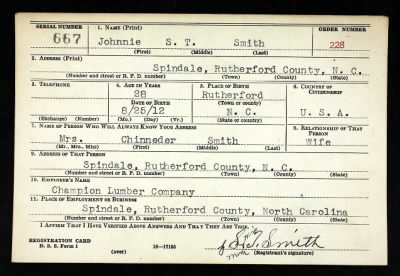 SERIAL NUMBER 1. NAME (Print) ORDER NUMBER
667 Johnnie S. T. Smith 228
(First) (Middle) (Last)
2. ADDRESS (Print)
Spindale, Rutherford County, N. C.
(Number and street or R. F. D. number) (Town) (County) (State)
3. TELEPHONE 4. AGE IN YEARS 5. PLACE OF BIRTH 6. COUNTRY OF CITIZENSHIP
28 Rutherford
DATE OF BIRTH (Town or county)
8/25/12 N. C. U. S. A.
(Exchange) (Number) (Mo.) (Day) (Yr.) (State or country)
7. NAME OF PERSON WHO WILL ALWAYS KNOW YOUR ADDRESS 8. RELATIONSHIP OF THAT PERSON
Mrs. Chinneder Smith Wife
(Mr., Mrs., Miss) (First) (Middle) (Last)
9. ADDRESS OF THAT PERSON
Spindale, Rutherford County, N. C.
(Number and street or R. F. D. number) (Town) (County) (State)
10. EMPLOYER'S NAME
Champion Lumber Company
11. PLACE OF EMPLOYMENT OR BUSINESS
Spindale, Rutherford County, North Carolina
(Number and street or R. F. D. number) (Town) (County) (State)
I AFFIRM THAT I HAVE VERIFIED ABOVE ANSWERS AND THAT THEY ARE TRUE.
REGISTRATION CARD
D. S. S. Form 1 16—17105 Smith
(over) (Registrant's signature)